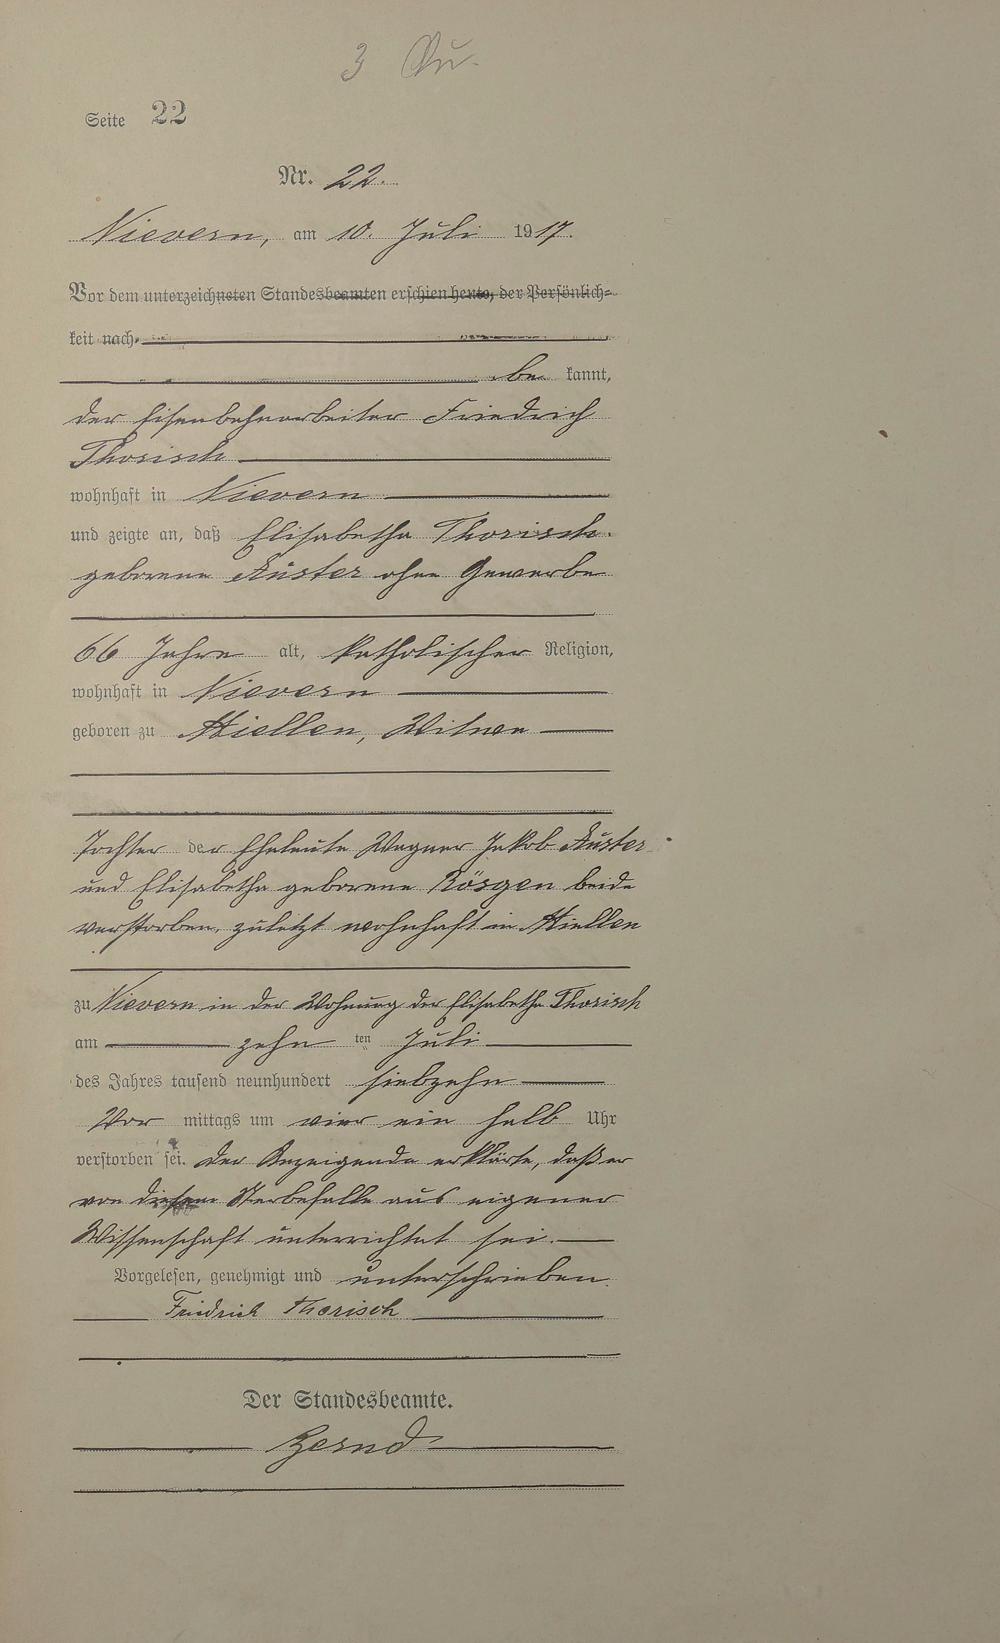 3
Seite 22
Nr. 22.
Nievern, am 10. Juli 1917.
Vor dem unterzeichneten Standesbeamten erschien heute, der Persönlich-
keit nach
be kannt,
der Eisenbahnarbeiter Friedrich
Thorisch
wohnhaft in Nievern
und zeigte an, daß Elisabetha Thorisch
geborene Auster ohne Gewerbe
66 Jahre alt, katholischer Religion,
wohnhaft in Nievern
geboren zu Miellen, Witwe
Tochter der Eheleute Wagner Jakob Auster
und Elisabetha geborene Rösgen beide
verstorben, zuletzt wohnhaft in Miellen
zu Nievern in der Wohnung der Elisabetha Thorisch
am zehn ten Juli
des Jahres tausend neunhundert siebzehn
Vor mittags um vier ein halb Uhr
verstorben sei. Der Anzeigende erklärte, daß er
von diesem Sterbefalle aus eigener
Wissenschaft unterrichtet sei.
Vorgelesen, genehmigt und unterschrieben
Friedrich Thorisch
Der Standesbeamte.
Zernd